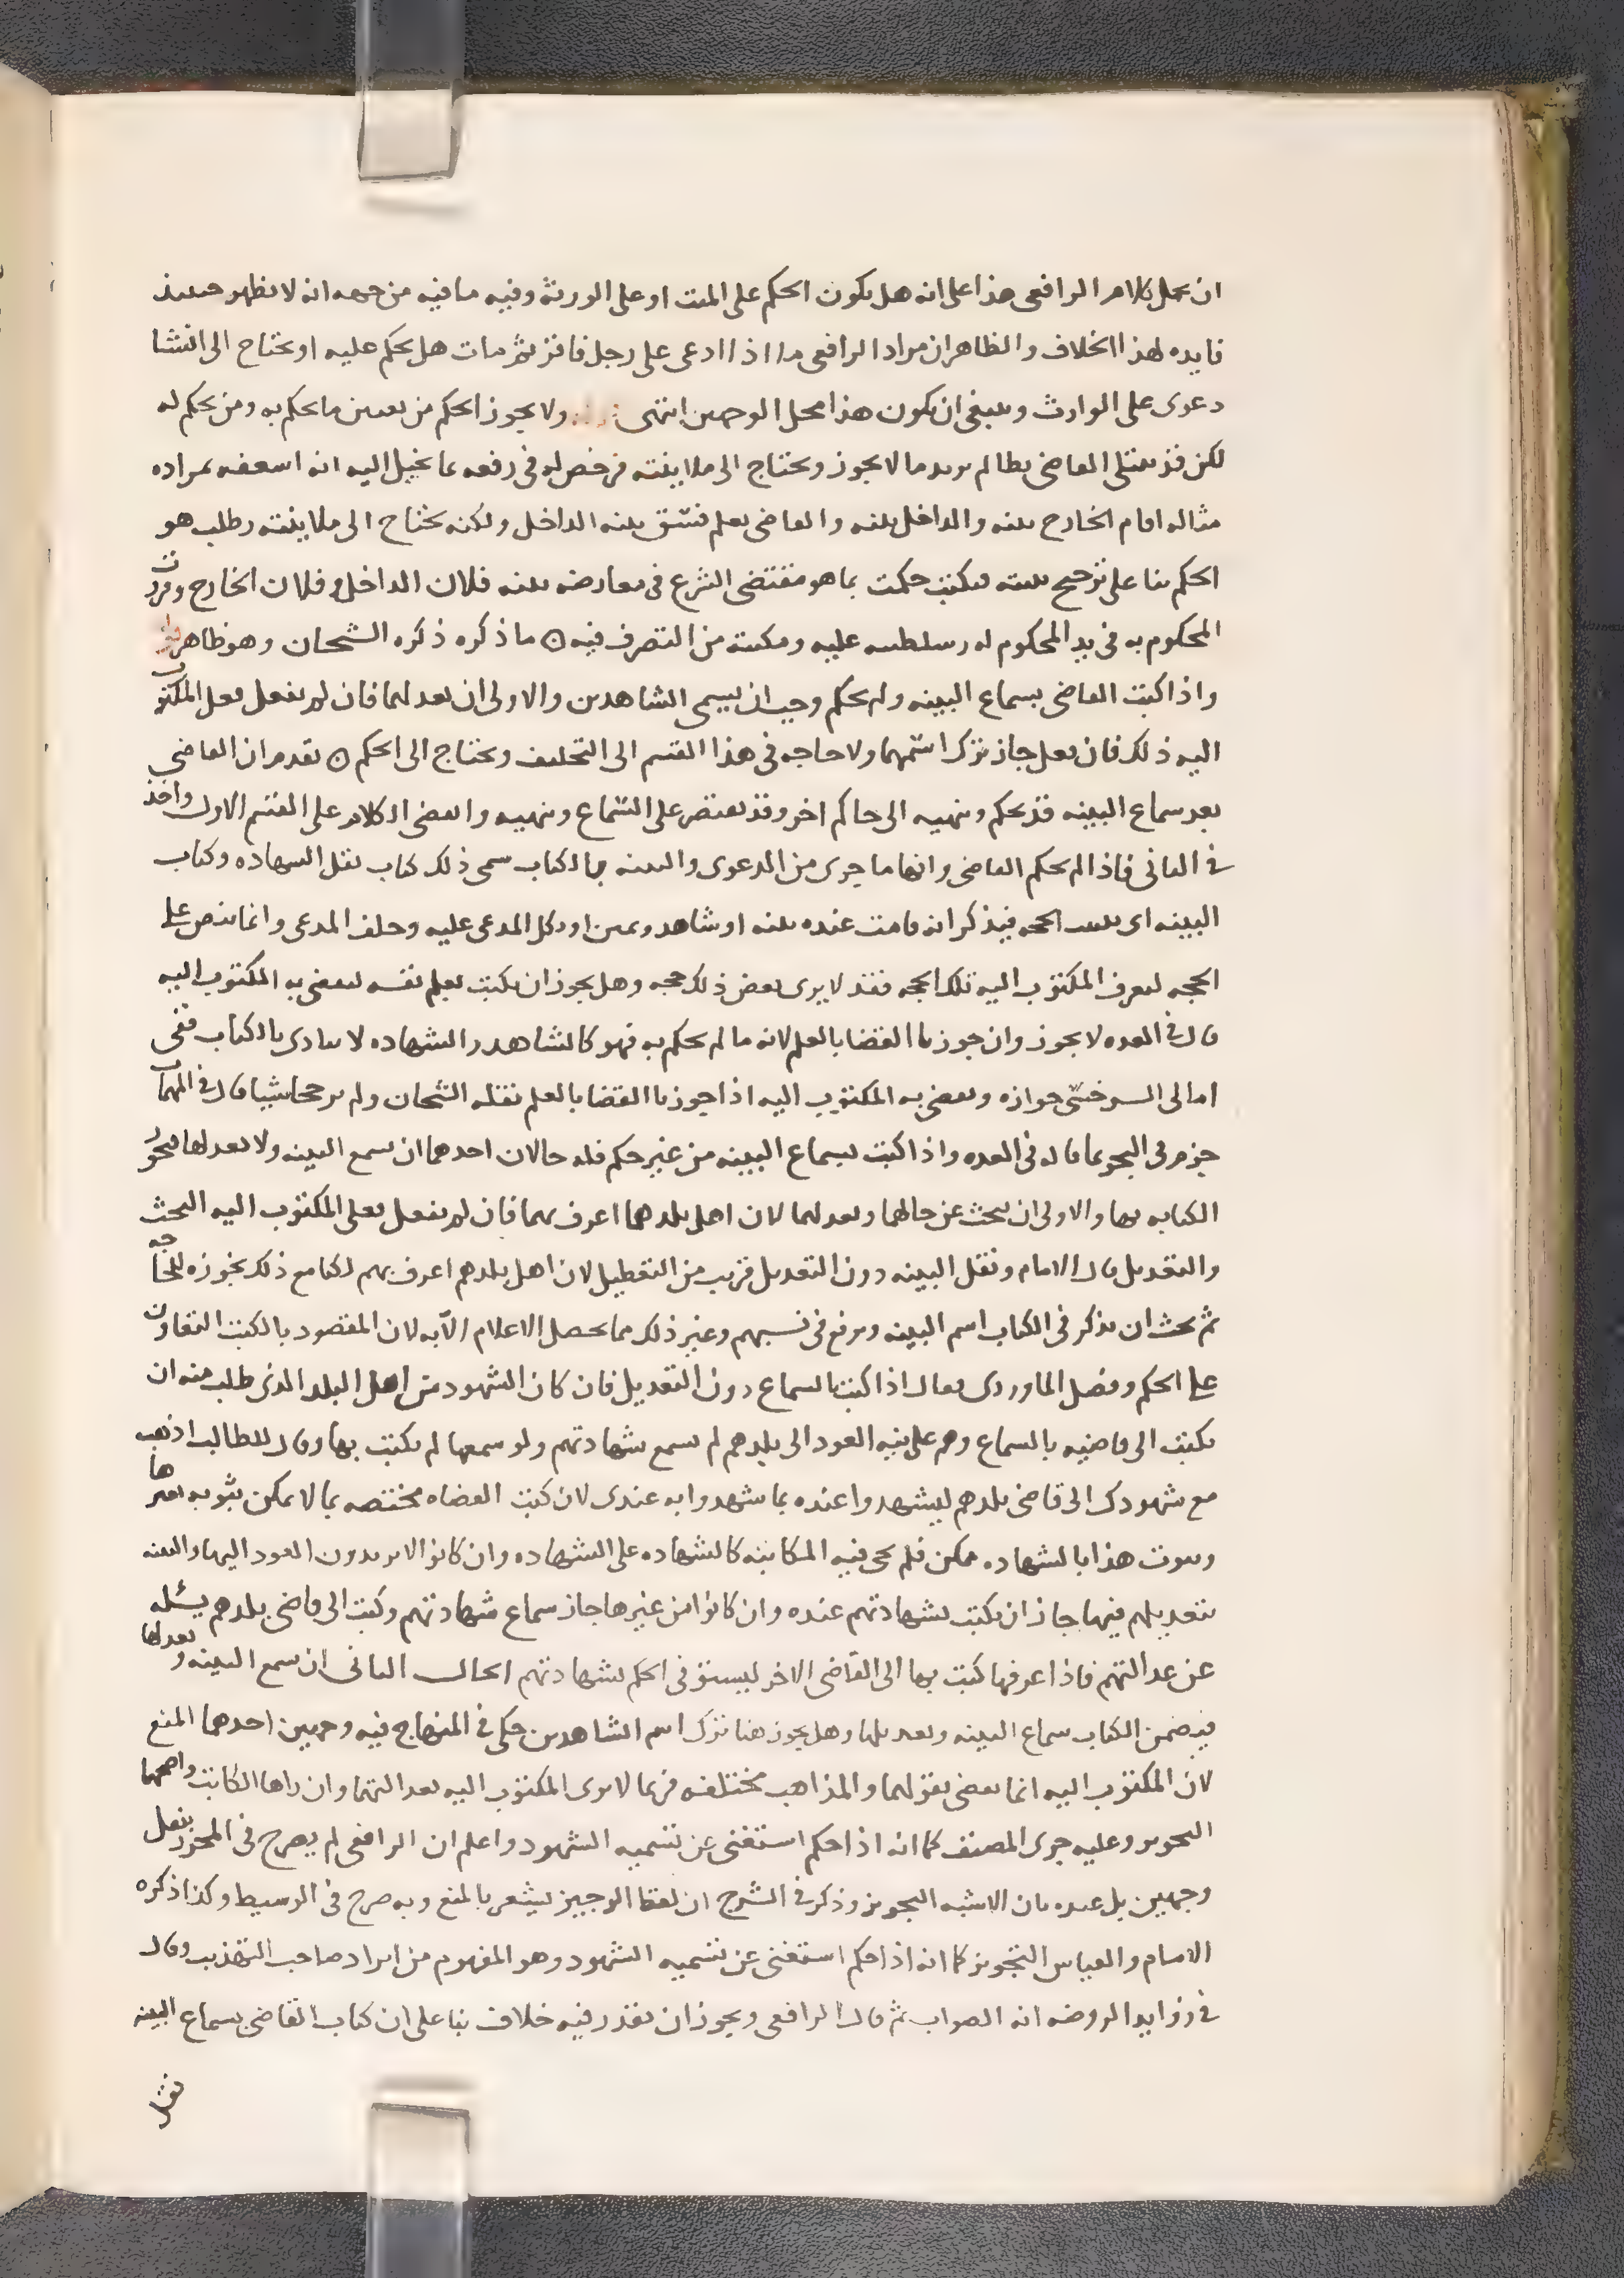 ان يحمل كلام الرافعي هذا على انه هل يكون الحكم على الميت او على الورثة وفيه ما فيه من جهه انه لا يظهر حينئذ
فايده لهذا الخلاف والظاهر ان مراد الرافعي ما اذا ادعى على رجل فاقر ثم مات هل يحكم عليه او يحتاج الى انشا
دعوى على الوارث وينبغي ان يكون هذا محل الوجهين انتهى ولا يجوز الحكم من تعيين ما يحكم به ومن يحكم له
لكن قد يبتلى القاضي بظالم يريد ما لا يجوز ويحتاج الى ملاينته فرخص له في رفعه بما يخيل اليه انه اسعفه بمراده
مثاله اقام الخارج بينه والداخل بينه والقاضي يعلم فسق بينه الداخل ولكنه يحتاج الى ملاينته وطلب هو
الحكم بنا على ترجيح بينته فيكتب حكمت بما هو مقتضى الشرع في معارضه بينه فلان الداخل وفلان الخارج وقررت
المحكوم به في يد المحكوم له وسلطته عليه ومكنته من التصرف فيه ۞ ما ذكره ذكره الشيخان وهو ظاهر
واذا كتب القاضي بسماع البينه ولم يحكم وجب ان يسمى الشاهدين والاولى ان يعدلهما فان لم يفعل فعل المكتوب
اليه ذلك فان فعل جاز ترك اسمهما ولا حاجه في هذا القسم الى التحليف ويحتاج الى الحكم ۞ تقدم ان القاضي
بعد سماع البينه قد يحكم وينهيه الى حاكم اخر وقد يقتصر على السماع وينهيه وانقضى الكلام على القسم الاول واخذ
في الثاني فاذا لم يحكم القاضي وانها ما جرى من الدعوى والبينه بالكتاب سمى ذلك كتاب نقل الشهاده وكتاب
البينه اى تثبيت الحجه فيذكر انه قامت عنده بينه او شاهد ويمين او نكل المدعى عليه وحلف المدعي وانما ينص على
الحجه ليعرف المكتوب اليه تلك الحجه فقد لا يرى بعض ذلك حجه وهل يجوز ان يكتب بعلم نفسه ليقضى به المكتوب اليه
قال في العده لا يجوز وان جوزنا القضا بالعلم لانه ما لم يحكم به فهو كالشاهد والشهاده لا تتادى بالكتاب وفي
امالى السرخسي جوازه ويقضى به المكتوب اليه اذا جوزنا القضا بالعلم نقله الشيخان ولم يرجحا شيا قال في المهمات
جزم في البحر بما قاله في العده واذا كتب بسماع البينه من غير حكم فله حالان احدهما ان يسمع البينه ولا يعدلها فيجوز
الكتابه بها والاولى ان يبحث عن حالها ويعدلهما لان اهل بلدهما اعرف بهما فان لم يفعل فعلى المكتوب اليه البحث
والتعديل قال الامام ونقل البينه دون التعديل قريب من التعطيل لان اهل بلدهم اعرف بهم لكنا مع ذلك نجوزه للحاجه
ثم بحث ان يذكر في الكتاب اسم البينه ويرفع في نسبهم وغير ذلك مما يحصل الاعلام الآبه لان المقصود بالكتب التعاون
على الحكم وفصل الماوردى فقال اذا كتب بالسماع دون التعديل فان كان الشهود من اهل البلد الذى طلب منه ان
يكتب الى قاضيه بالسماع وهم على نيه العود الى بلدهم لم يسمع شهادتهم ولو سمعها لم يكتب بها وقال للطالب اذهب
مع شهودك الى قاضي بلدهم ليشهدوا عنده بما شهدوا به عندى لان كتب القضاه مختصه بما لا يمكن ثبوته بغيرها
وثبوت هذا بالشهاده ممكن فلم يجز فيه المكاتبه كالشهاده على الشهاده وان كانوا لا يريدون العود اليها والبينه
بتعديلهم فيها جاز ان يكتب بشهادتهم عنده وان كانوا من غيرها جاز سماع شهادتهم وكتب الى قاضي بلدهم يسئله
عن عدالتهم فاذا عرفها كتب بها الى القاضي الاخر ليستوفى الحكم بشهادتهم الحال الثانى ان يسمع البينه ويعدلها
فيضمن الكتاب سماع البينه وتعديلها وهل يجوز هنا ترك اسم الشاهدين حكى في المنهاج فيه وجهين احدهما المنع
لان المكتوب اليه انما يقضى بقولهما والمذاهب مختلفه فربما لا يرى المكتوب اليه عدالتهما وان راها الكاتب واصحهما
التجويز وعليه جرى المصنف كما انه اذا حكم استغنى عن تسميه الشهود واعلم ان الرافعي لم يصرح في المحرر بنقل
وجهين بل عبر بان الاشبه التجويز وذكر في الشرح ان لفظ الوجيز يشعر بالمنع وبه صرح في الوسيط وكذا ذكره
الامام والقياس التجويز كما انه اذا حكم استغنى عن تسميه الشهود وهو المفهوم من ايراد صاحب التهذيب وقال
في زوايد الروضه انه الصواب ثم قال الرافعي ويجوز ان يقدر فيه خلاف بنا على ان كتاب القاضي بسماع البينه
نقل